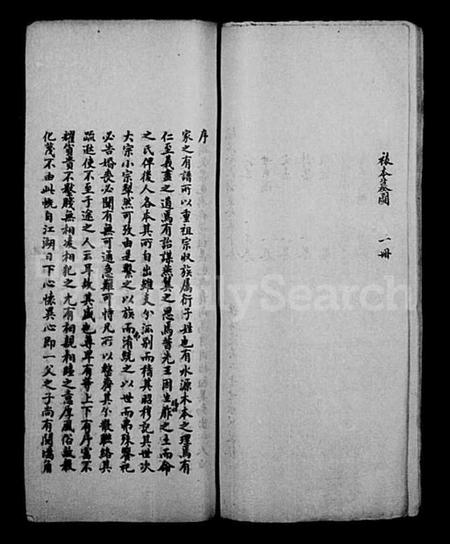 裱本墓圖 一冊
序
家之有譜所以重祖宗收族屬衍子姓也有水源木本之理焉有
仁至義盡之道焉有詒謀燕翼之思焉昔先王因生賜之土而命
之氏俾後人各本其所自出雖支分派別而稽其昭穆記其世次
大宗小宗犁然可考由是繫之以族而清統之以世而弗殊祭祀
必告婚喪必聞有無可通急難可恃凡所以整齊其分散聯絡其
疏逖使不至于途之人云耳故其盛也尊卑有等上下有序富不
耀貧貴不驕賤無相凌相犯之尤有相親相睦之意厚風俗敦教
化蔑不由此慨自江湖日下心懷異心即一父之子尚有鬩墻角
FamilySearch